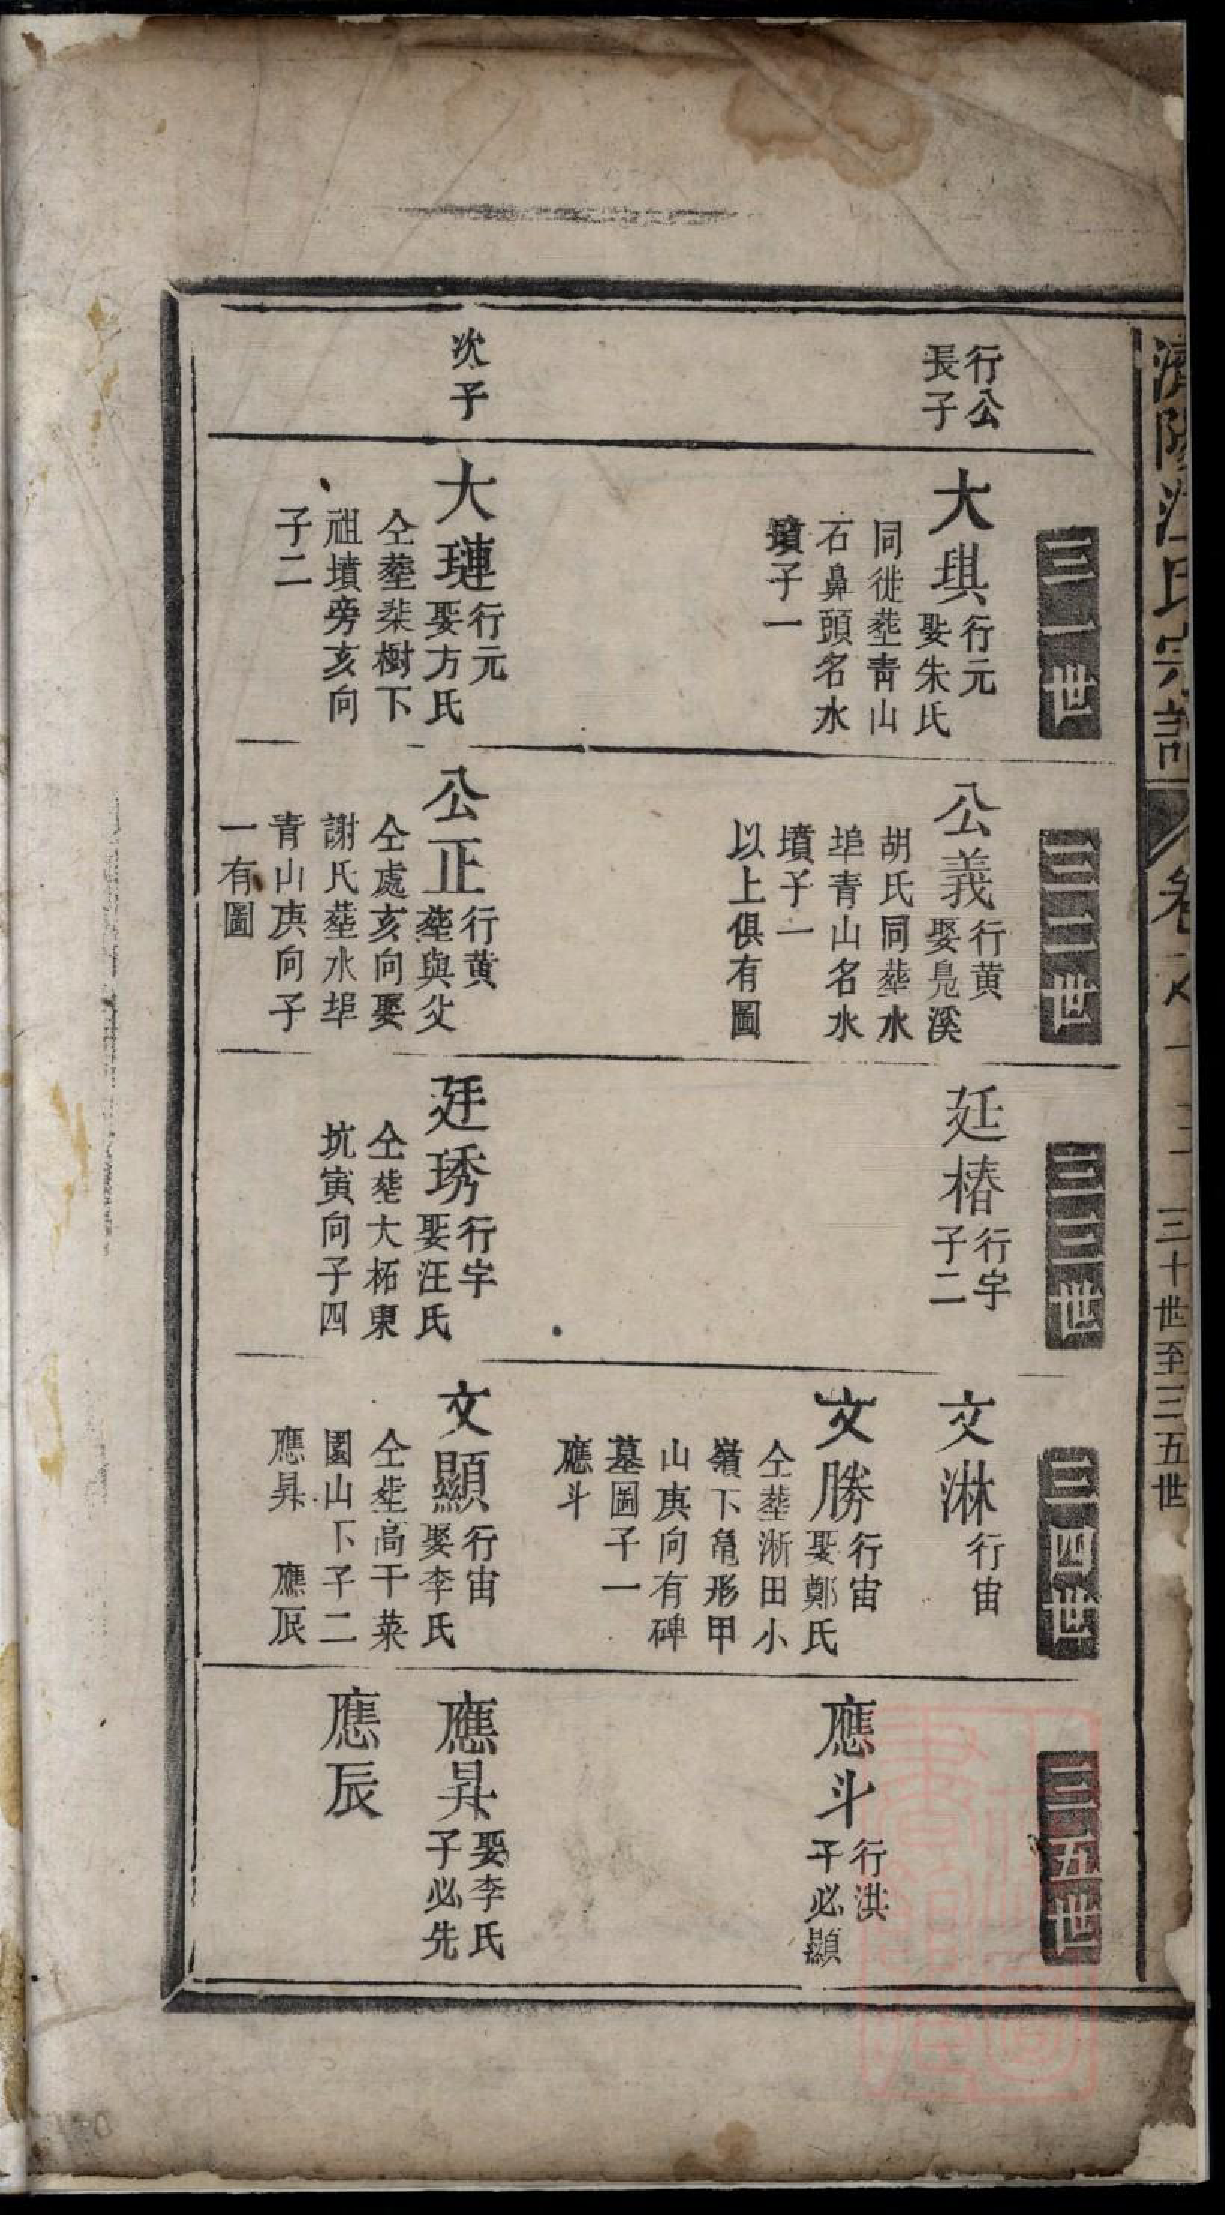 濟陽江氏宗譜
卷之十三
三十世至三五世
行公
長子
次子
三一世
大琪
行元
娶朱氏
同徙塟青山
石鼻頭名水
墳子一
大璉
行元
娶方氏
仝塟柒樹下
祖墳旁亥向
子二
三二世
公義
行黄
娶鳧溪
胡氏同塟水
埠青山名水
墳子一
以上俱有圖
公正
行黄
塟與父
仝處亥向娶
謝氏塟水埠
青山庚向子
一有圖
三三世
廷椿
行宇
子二
廷琇
行宇
娶汪氏
仝塟大柘東
坑寅向子四
三四世
文淋
行宙
文勝
行宙
娶鄭氏
仝塟淅田小
嶺下凫形甲
山庚向有碑
墓圖子一
應斗
文顯
行宙
娶李氏
仝塟高干菜
園山下子二
應昇 應辰
三五世
應斗
行洪
子必顯
應昇
娶李氏
子必先
應辰